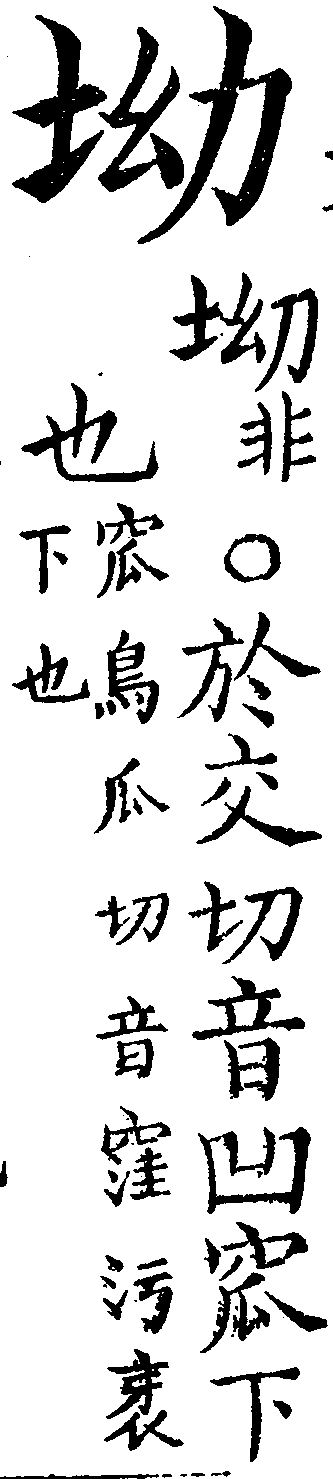 坳
㘭非○於交切音凹窊下
也
窊鳥瓜切音窪污衺
下也